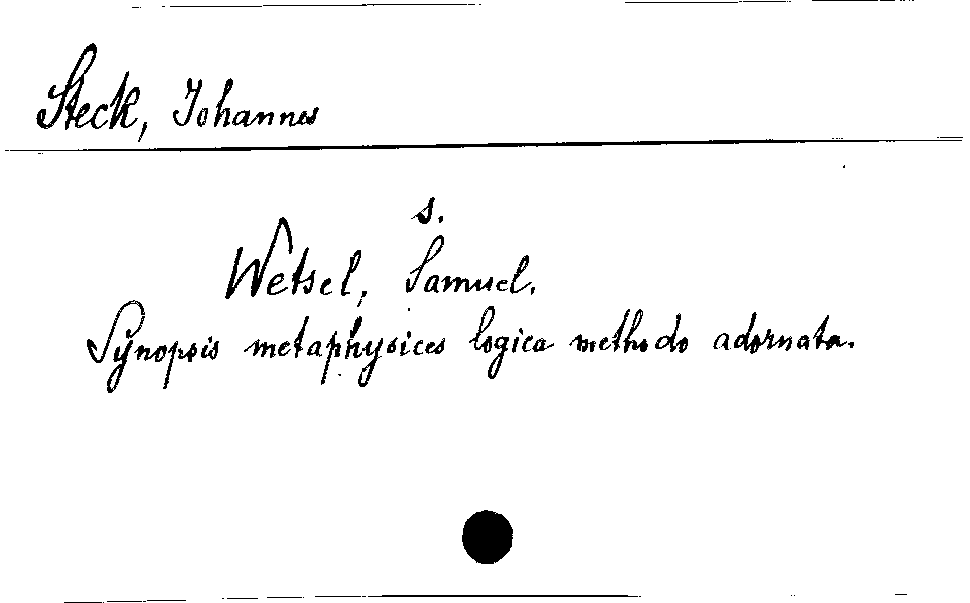 Steck, Johannes
s.
Wetsel, Samuel.
Synopsis metaphysices logica methodo adornata.